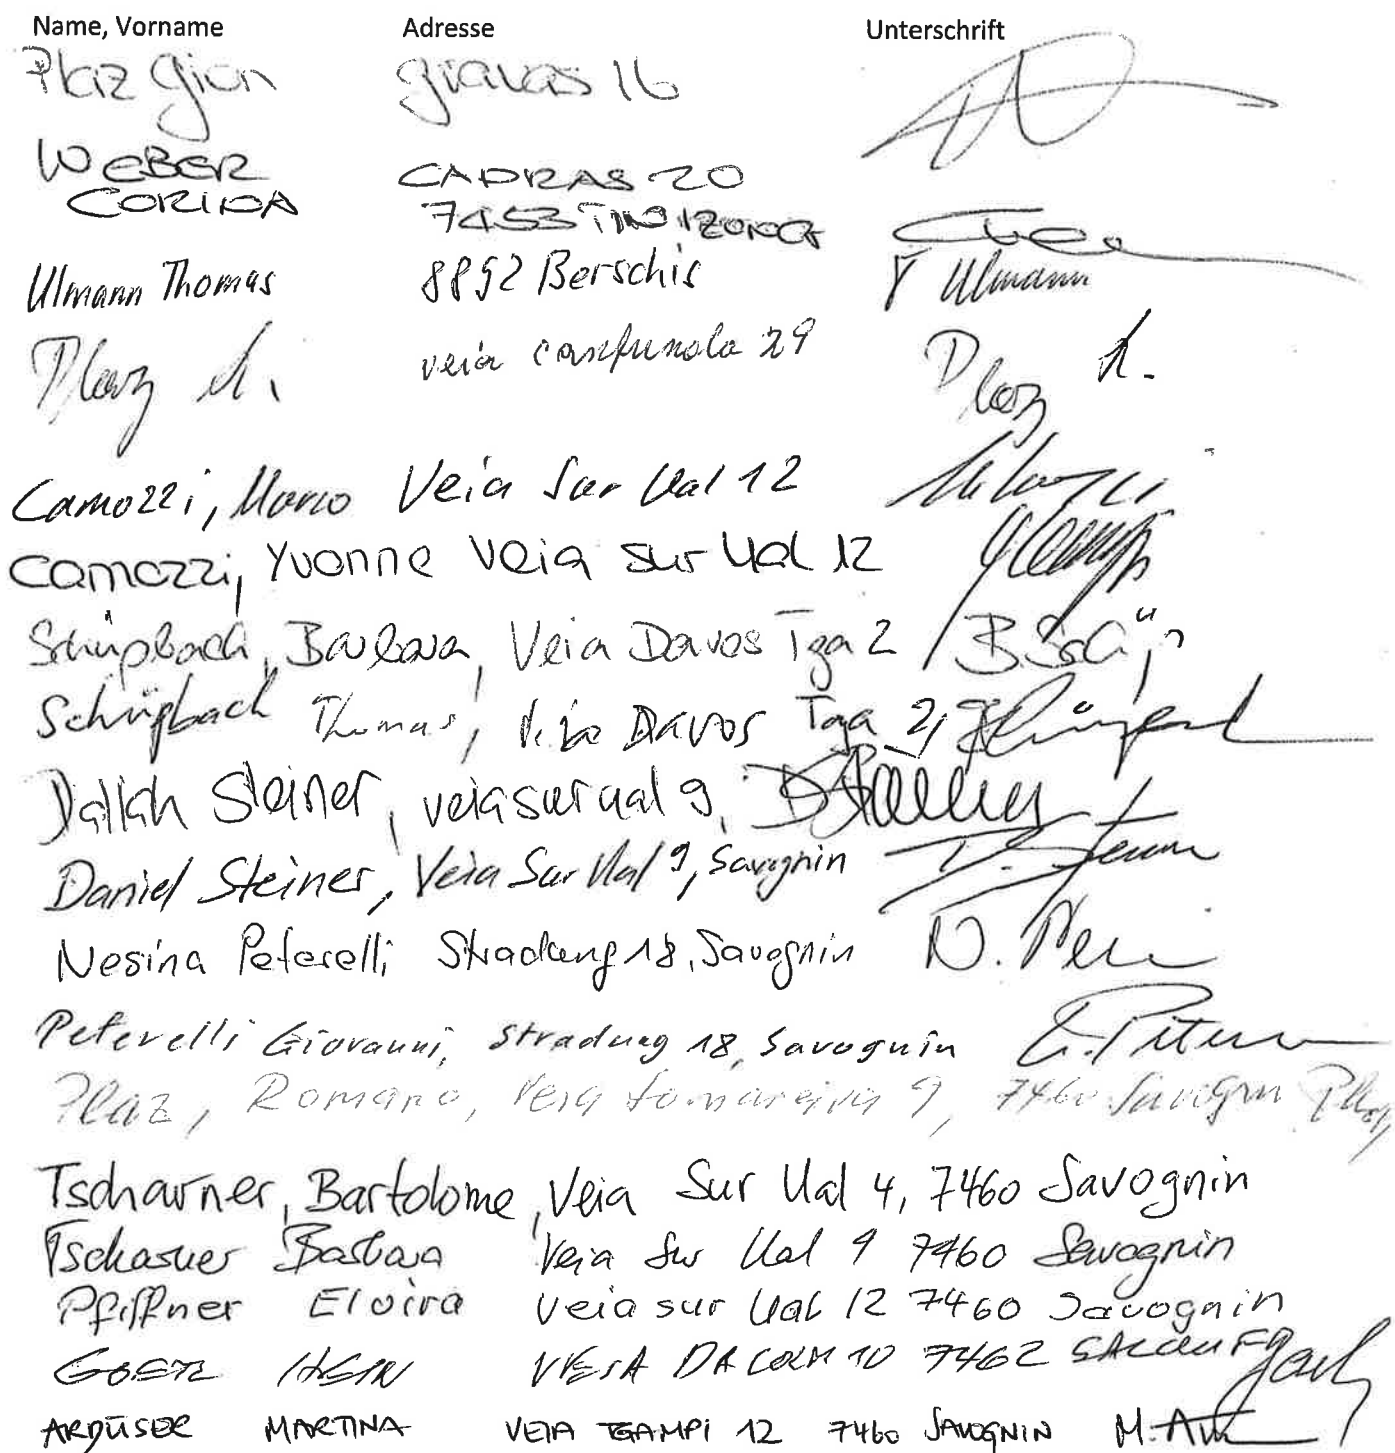 Name, Vorname Adresse Unterschrift
Plaz Gion gravas 16
WEBER CADRAS 20
CORINA 7453 TINIZONG
Ulmann Thomas 8892 Berschis T Ulmann
Plaz A. veia 29 Plaz A.
Camozzi, Marco Veia Sur Ual 12
Camozzi, Yvonne Veia sur Ual 12
Schüpbach, Barbara, Veia Davos Tga 2
Schüpbach Thomas, Veia Davos Tga 2,
Steiner, veia sur ual 9,
Daniel Steiner, Veia Sur Ual 9, Savognin D. Steiner
Nesina Peterelli Stradung 18, Savognin
Peterelli Giovanni, Stradung 18, Savognin
Plaz, Romano, Veia 9, 7460 Savognin Plaz
Tscharner, Bartolome, Veia Sur Ual 4, 7460 Savognin
Tscharner Barbara Veia Sur Ual 7460 Savognin
Pfiffner Elvira Veia sur Ual 12 7460 Savognin
VEIA DA 10 7462
ARDÜSER MARTINA VEIA TGAMPI 12 7460 SAVOGNIN